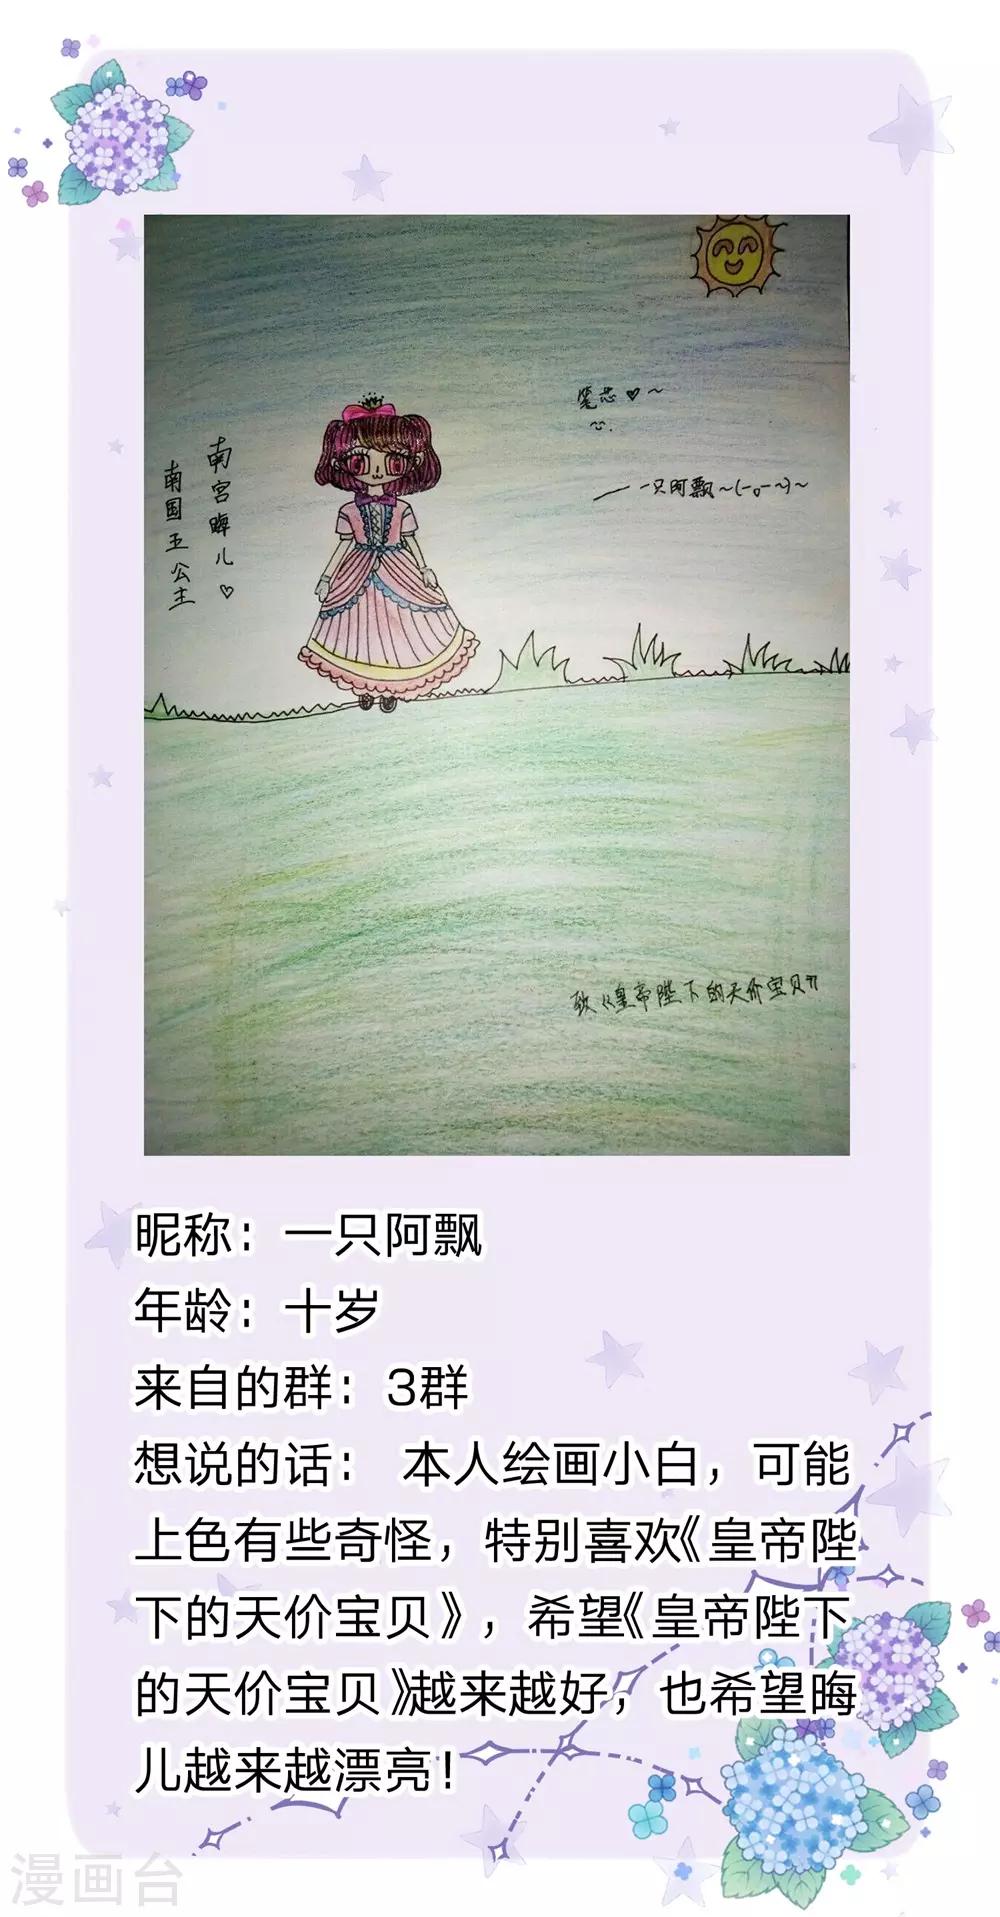 笔芯♡~
一只阿飘~(-。-~)~
南宫晦儿♡
南国五公主
致《皇帝陛下的天价宝贝》
昵称：一只阿飘
年龄：十岁
来自的群：3群
想说的话： 本人绘画小白，可能
上色有些奇怪，特别喜欢《皇帝陛
下的天价宝贝》，希望《皇帝陛下
的天价宝贝》越来越好，也希望晦
儿越来越漂亮！
漫画台